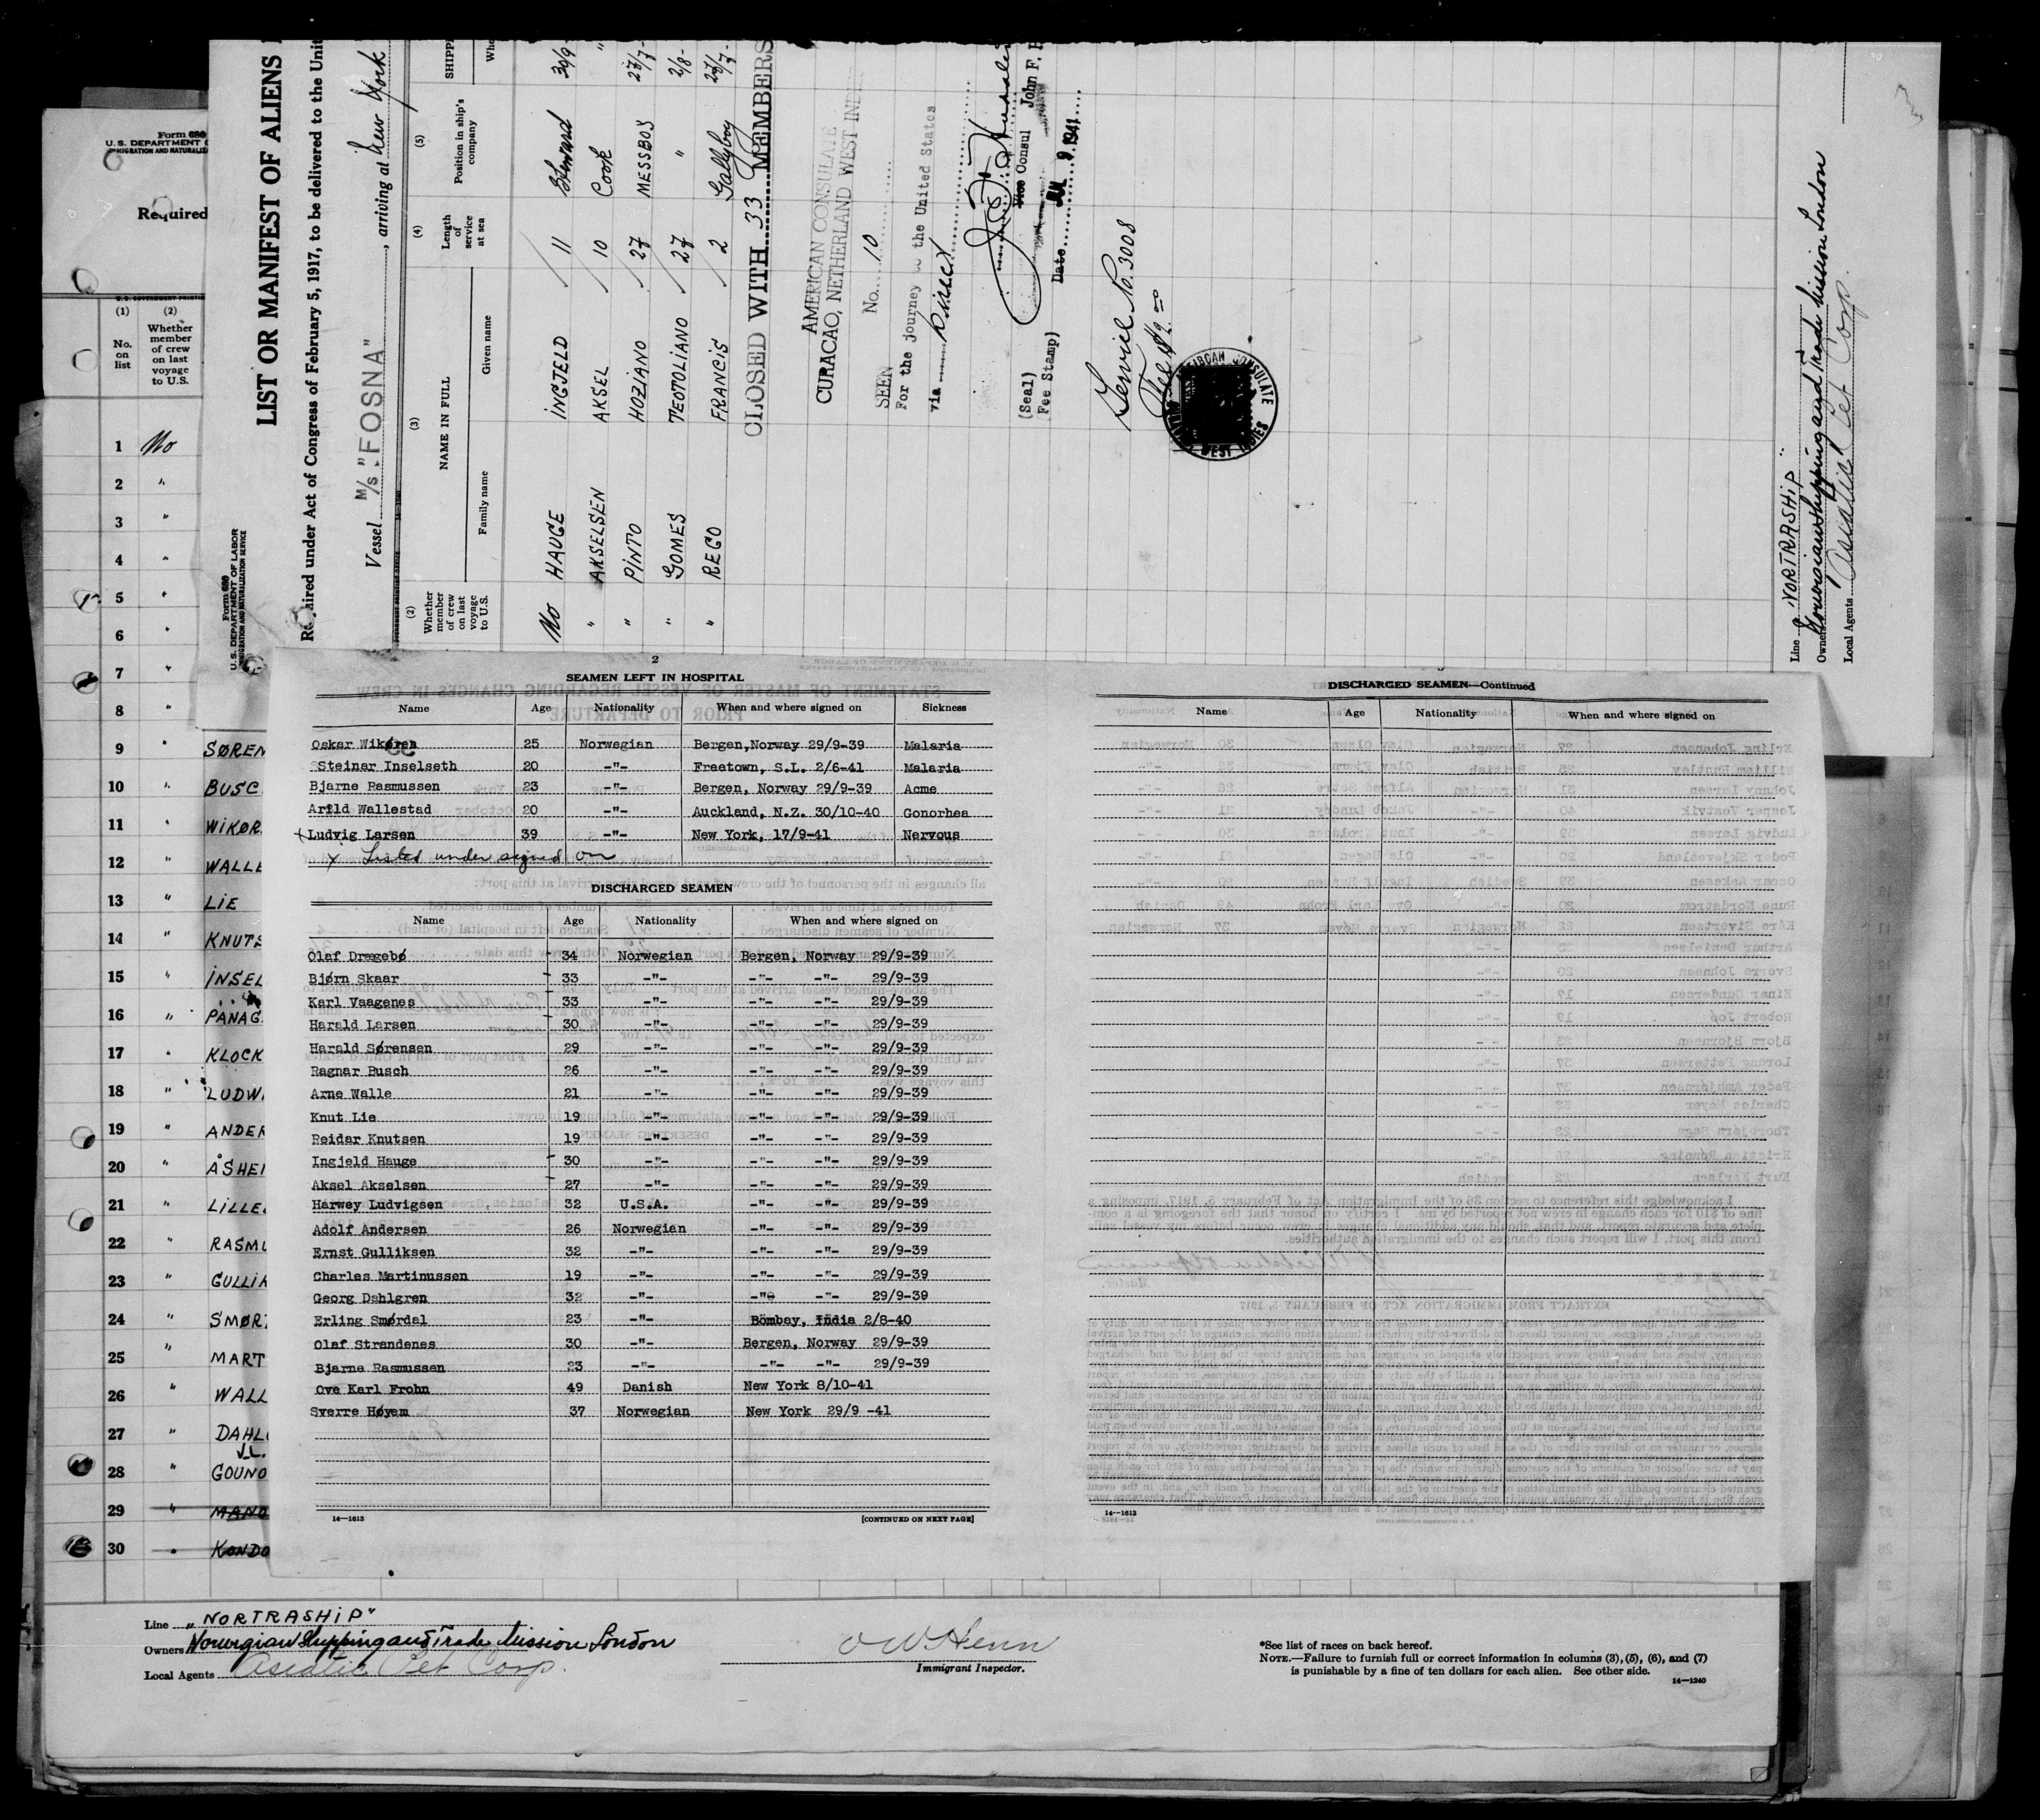 Form 680
U.S. DEPARTMENT
IMMIGRATION AND NATURALIZA
Required
(1) (2)
No. on list
Whether member of crew on last voyage to U.S.
1 No
2 "
3 "
4 "
5 "
6 "
7 "
8 "
9 " SØREN
10 " BUSC
11 " WIKØR
12 " WALLE
13 " LIE
14 " KNUTS
15 " INSEL
16 " PANAG
17 " KLOCK
18 " LUDW
19 " ANDER
20 " ÅSHEI
21 " LILLE
22 " RASMU
23 " GULLIK
24 " SMØR
25 MART
26 " WALL
27 " DAHL
28 " GOUNO
29 " MANO
30 " KONDO
Form 680
U.S. DEPARTMENT OF LABOR
IMMIGRATION AND NATURALIZATION SERVICE
LIST OR MANIFEST OF ALIENS
Required under Act of Congress of February 5, 1917, to be delivered to the Unit
Vessel M/s "FOSNA", arriving at New York
(2) (3) (4) (5)
Whether member of crew on last voyage to U.S.
NAME IN FULL
Family name Given name
Length of service at sea
Position in ship's company
SHIPP
Whe
No HAUGE INGJELD 11 Steward 30/9-
" AKSELSEN AKSEL 10 Cook "
" PINTO HOZIANO 27 MESSBOY 27/7-
" GOMES TEOTOLIANO 27 " 2/8-
" REGO FRANCIS 2 Galleyboy 27/7-
CLOSED WITH 33 MEMBERS
AMERICAN CONSULATE
CURACAO, NETHERLAND WEST INDI
SEEN No. 10
For the journey to the United States
via Direct
(Seal)
Fee Stamp)
Vice Consul John F. H
Date 9 1941
Service No. 3008
Fee $2.00
AMERICAN CONSULATE
WEST INDIES
Line "NORTRASHIP"
Owners Norwegian Shipping and Trade Mission London
Local Agents Asiatic Pet Corp.
2
SEAMEN LEFT IN HOSPITAL
Name Age Nationality When and where signed on Sickness
Oskar Wikøren 25 Norwegian Bergen,Norway 29/9-39 Malaria
Steinar Inselseth 20 -"- Freetown, S.L. 2/6-41 Malaria
Bjarne Rasmussen 23 -"- Bergen, Norway 29/9-39 Acme
Arild Wallestad 20 -"- Auckland, N.Z. 30/10-40 Gonorhea
x Ludvig Larsen 39 -"- New York, 17/9-41 Nervous
x Listed under signed on
DISCHARGED SEAMEN
Name Age Nationality When and where signed on
Olaf Drægebø 34 Norwegian Bergen, Norway 29/9-39
Bjørn Skaar 33 -"- -"- -"- 29/9-39
Karl Vaagenes 33 -"- -"- -"- 29/9-39
Harald Larsen 30 -"- -"- -"- 29/9-39
Harald Sørensen 29 -"- -"- -"- 29/9-39
Ragnar Busch 26 -"- -"- -"- 29/9-39
Arne Walle 21 -"- -"- -"- 29/9-39
Knut Lie 19 -"- -"- -"- 29/9-39
Reidar Knutsen 19 -"- -"- -"- 29/9-39
Ingjeld Hauge 30 -"- -"- -"- 29/9-39
Aksel Akselsen 27 -"- -"- -"- 29/9-39
Harwey Ludvigsen 32 U.S.A. -"- -"- 29/9-39
Adolf Andersen 26 Norwegian -"- -"- 29/9-39
Ernst Gulliksen 32 -"- -"- -"- 29/9-39
Charles Martinussen 19 -"- -"- -"- 29/9-39
Georg Dahlgren 32 -"- -"- -"- 29/9-39
Erling Smørdal 23 -"- Bombay, India 2/8-40
Olaf Strandenes 30 -"- Bergen, Norway 29/9-39
Bjarne Rasmussen 23 -"- -"- -"- 29/9-39
Ove Karl Frohn 49 Danish New York 8/10-41
Sverre Høyem 37 Norwegian New York 29/9 -41
14—1613 [CONTINUED ON NEXT PAGE]
DISCHARGED SEAMEN—Continued
Name Age Nationality When and where signed on
14—1613
Line "NORTRASHIP"
Owners Norwegian Shipping and Trade Mission London
Local Agents Asiatic Pet Corp.
O W Henn
Immigrant Inspector.
*See list of races on back hereof.
NOTE.—Failure to furnish full or correct information in columns (3), (5), (6), and (7)
is punishable by a fine of ten dollars for each alien. See other side.
14—1240